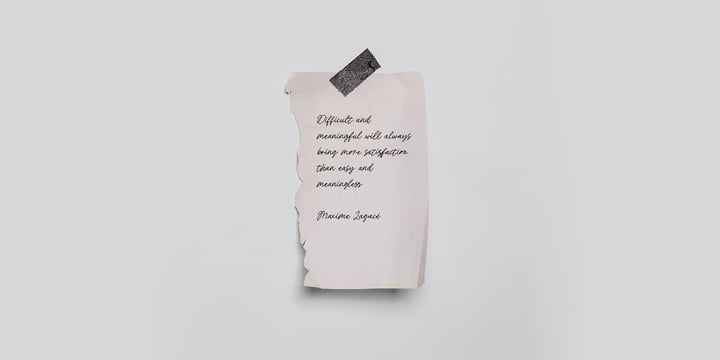 Difficult and
meaningful will always
bring more satisfaction
than easy and
meaningless
Maxime Lagacé